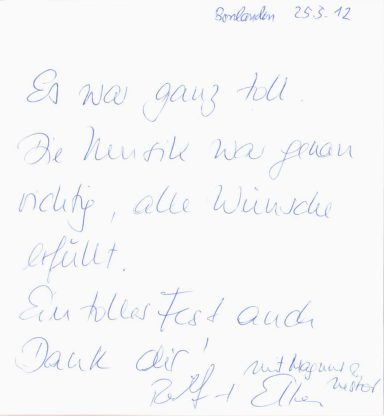 Bonlanden 25.3.12
Es war ganz toll.
Die Musik war genau
richtig, alle Wünsche
erfüllt.
Ein tolles Fest auch
Dank dir!
mit Magnus &
Nestor
Rolf + Elke